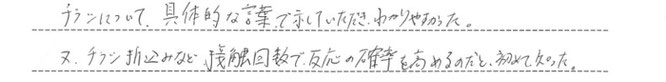 チラシについて、具体的な言葉で示していただき、わかりやすかった。
又、チラシ折込みなど、接触回数で反応の確率を高めるのだと、初めて知った。